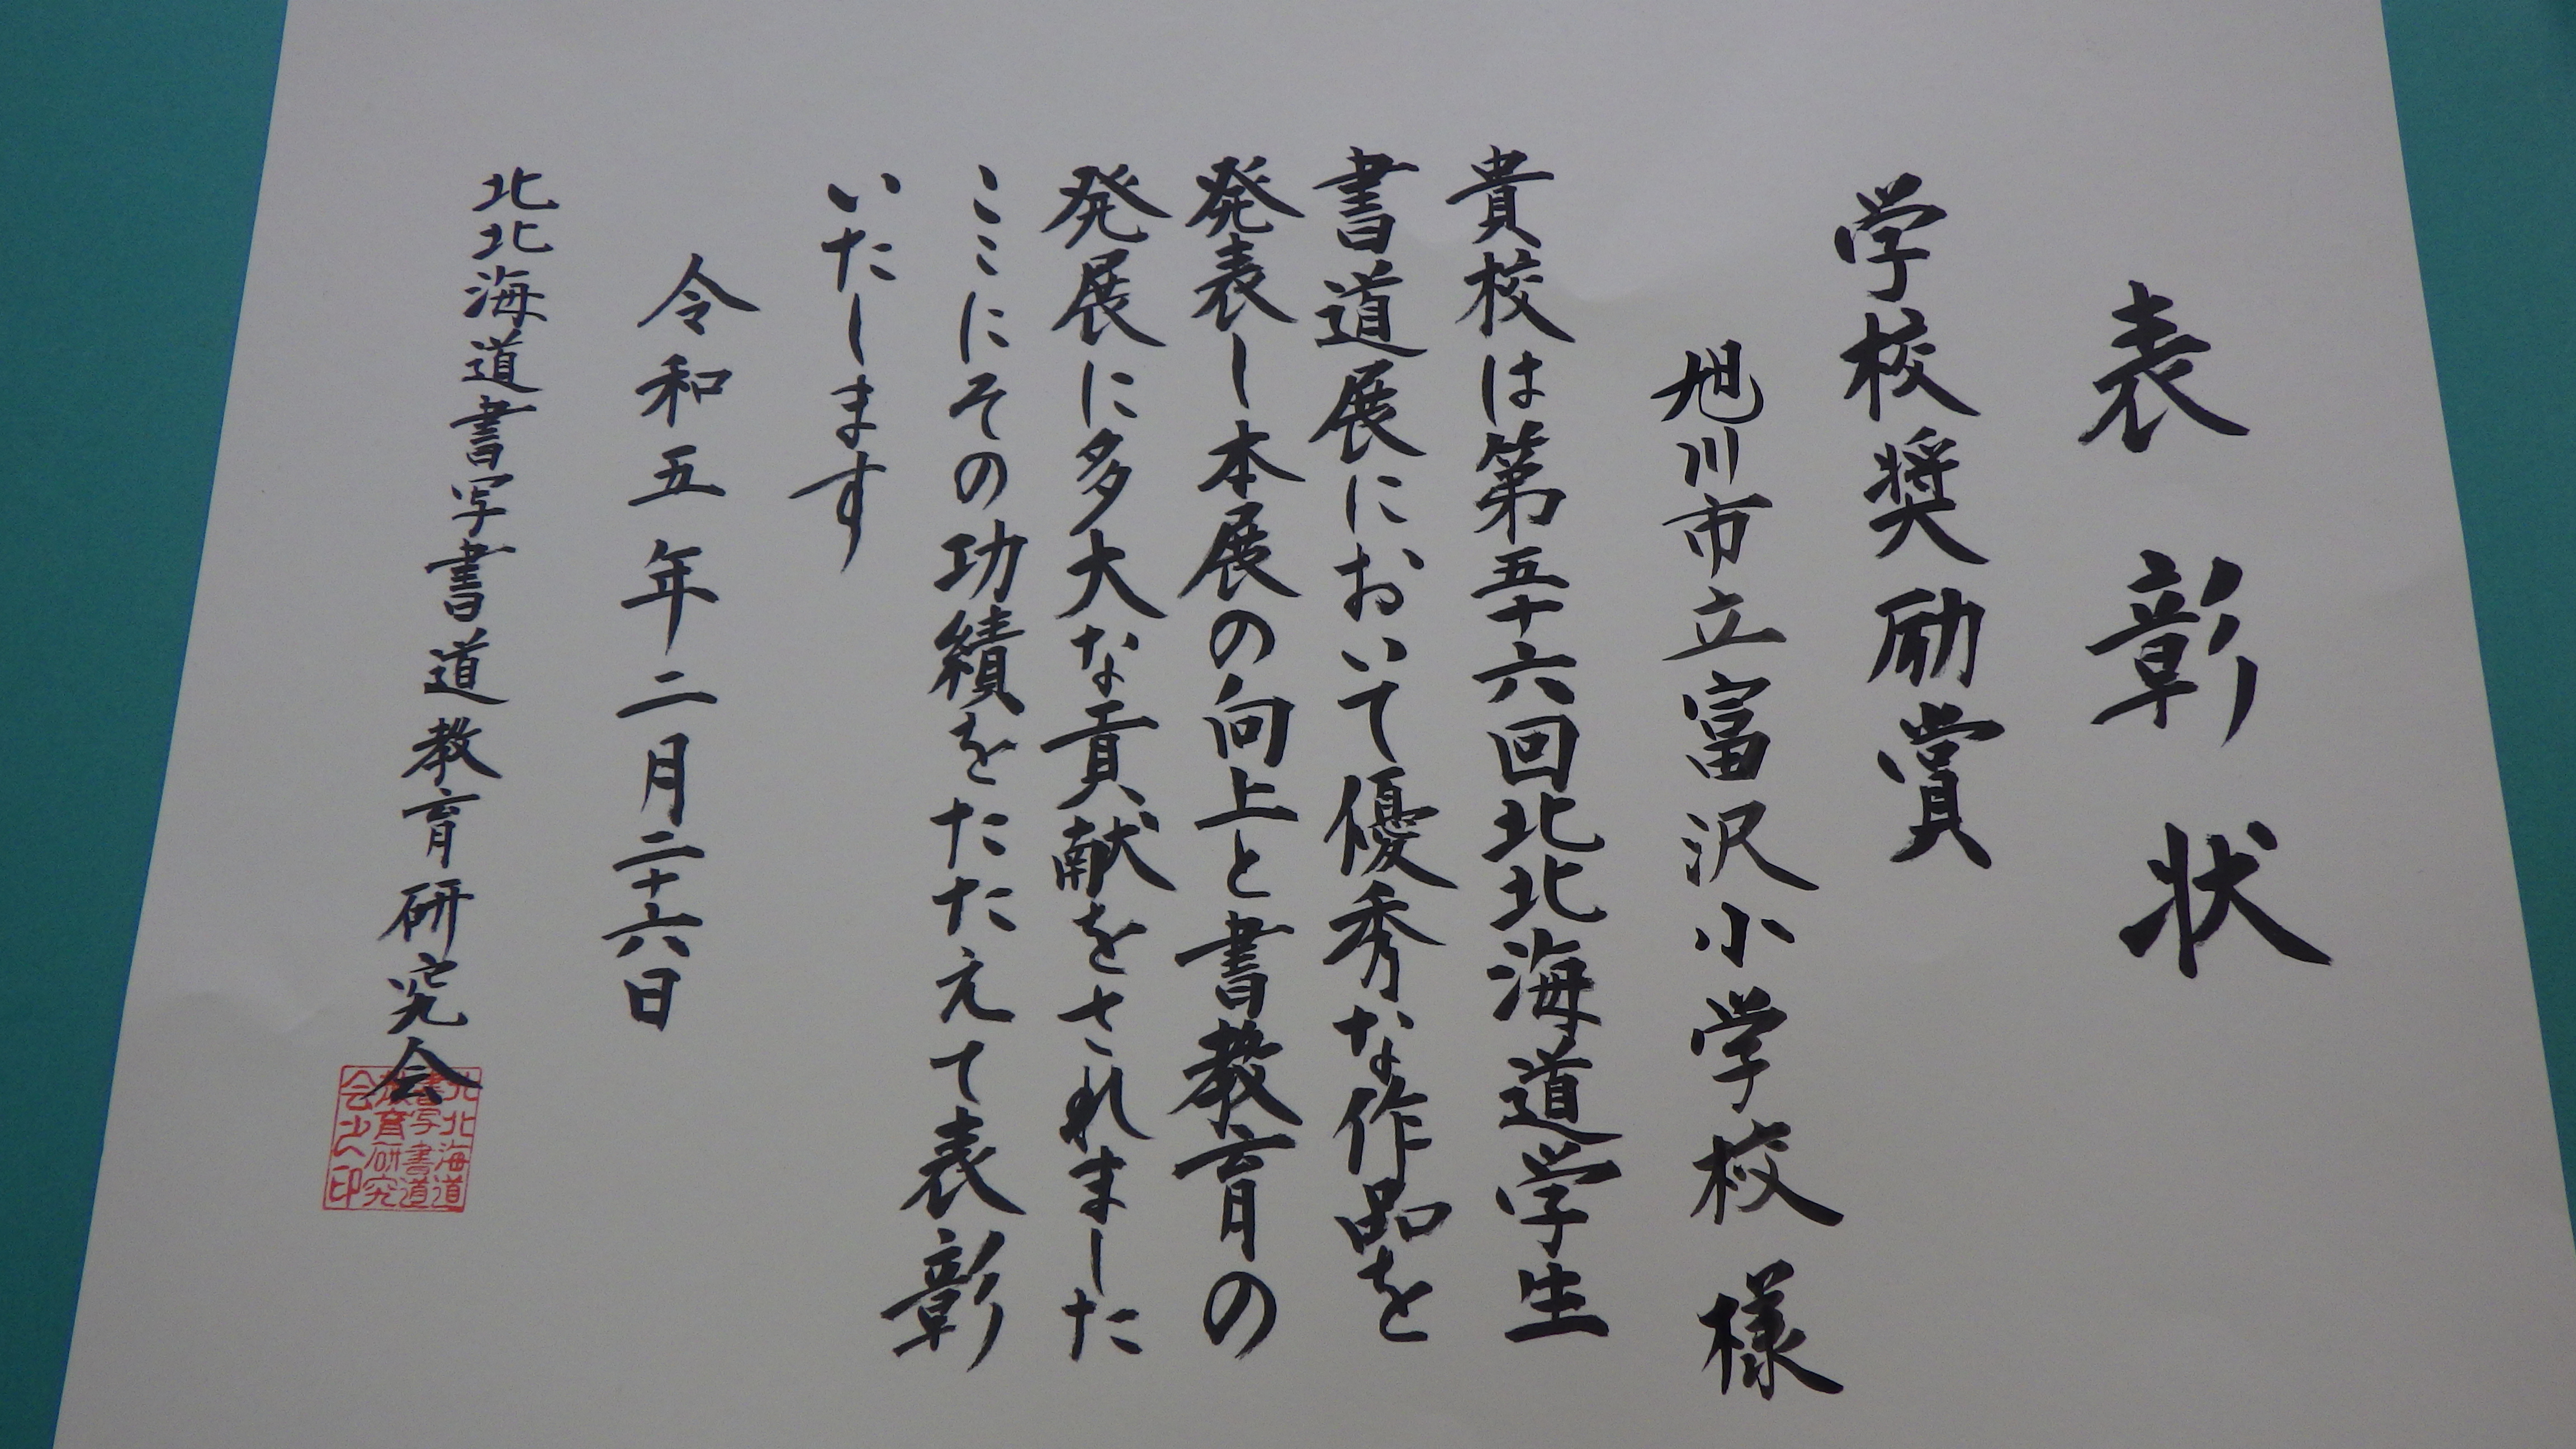 表彰状
学校奨励賞
旭川市立富沢小学校様
貴校は第五十六回北北海道学生
書道展において優秀な作品を
発表し本展の向上と書教育の
発展に多大な貢献をされました
ここにその功績をたたえて表彰
いたします
令和五年二月二十六日
北北海道書写書道教育研究会
北北海道
書写書道
教育研究
会之印